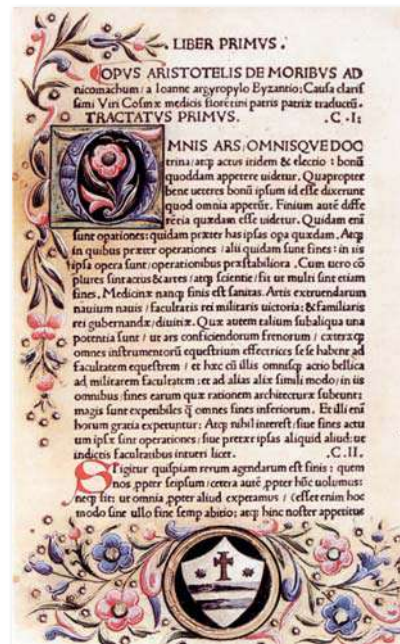 LIBER PRIMVS.
OPVS ARISTOTELIS DE MORIBVS AD
nicomachum / a Ioanne argyropylo Byzantio: Causa claris
simi Viri Cosmæ medicis florētini patris patriæ traductū.
TRACTATVS PRIMVS. .C.I:
OMNIS ARS / OMNISQVE DOC
trina / atq; actus itidem & electio : bonū
quoddam appetere uidetur. Quapropter
bene ueteres bonū ipsum id esse dixerunt
quod omnia appetūt. Finium autē diffe
rētia quædam esse uidetur. Quidam eni
sunt opationes: quidam præter has ipsas opa quædam. Atq;
in quibus præter operationes / alii quidam sunt fines: in iis
ipsa opera sunt / operationibus præstabiliora. Cum uero cō
plures sint actus & artes / atq; scientie / fit ut multi sint etiam
fines. Medicinæ nanq; finis est sanitas. Artis extruendarum
nauium nauis / facultatis rei militaris uictoria: & familiaris
rei gubernandæ / diuitiæ. Quæ autem talium sub aliqua una
potentia sunt / ut ars conficiendorum frenorum / cæteræq;
omnes instrumentorū equestrium effectrices se se habent ad
facultatem equestrem / et hæc cū illis omnisq; actio bellica
ad militarem facultatem: et ad alias aliæ simili modo / in iis
omnibus / fines earum quæ rationem architecturæ subeunt:
magis sunt expetibiles q̄ omnes fines inferiorum. Et illi eni
horum gratia expetuntur: Atq; nihil interest / siue fines actu
um ipsæ sint operationes / siue præter ipsas aliquid aliud: ut
in dictis facultatibus intueri licet. .C.II.
SI igitur quispiam rerum agendarum est finis : quem
nos ppter seipsum / cetera autē ppter hūc uolumus:
neq; fit: ut omnia ppter aliud expetamus / (esset enim hoc
modo sine ullo fine semp abitio; atq; hinc noster appetitus